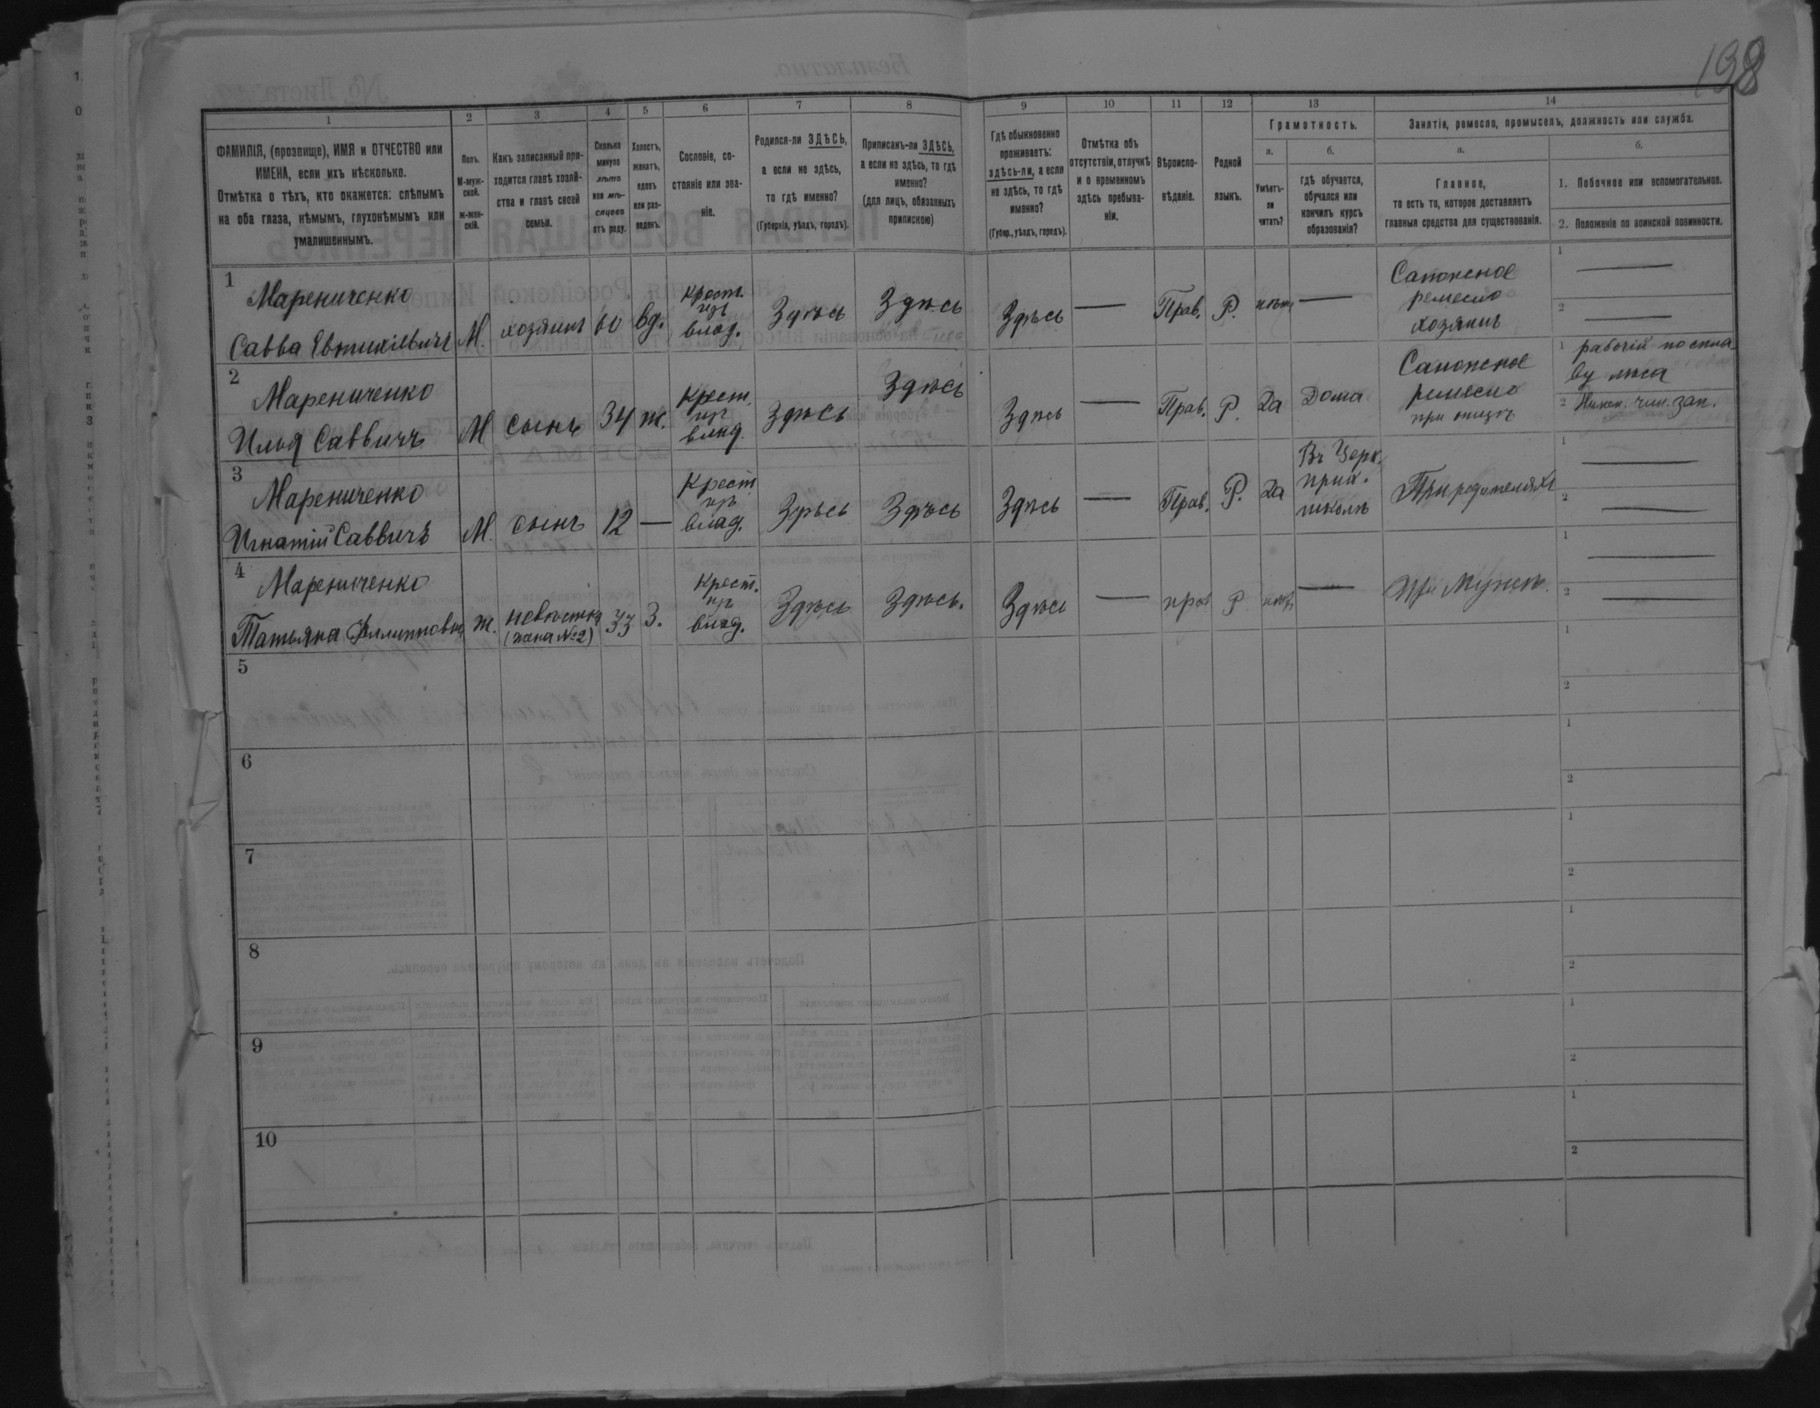 198
1 2 3 4 5 6 7 8 9 10 11 12 13 14
ФАМИЛІЯ, (прозвище), ИМЯ и ОТЧЕСТВО или ИМЕНА, если ихъ нѣсколько.
Отмѣтка о тѣхъ, кто окажется: слѣпымъ на оба глаза, нѣмымъ, глухонѣмымъ или умалишеннымъ.
Полъ. М-мужской. ж-женскій.
Какъ записанный приходится главѣ хозяйства и главѣ своей семьи.
Сколько минуло лѣтъ или мѣсяцевъ отъ роду.
Холостъ, женатъ, вдовъ или разведенъ.
Сословіе, состояніе или званіе.
Родился-ли ЗДѢСЬ, а если не здѣсь, то гдѣ именно?
(Губернія, уѣздъ, городъ).
Приписанъ-ли ЗДѢСЬ, а если не здѣсь, то гдѣ именно?
(для лицъ, обязанныхъ припискою)
Гдѣ обыкновенно проживаетъ: здѣсь-ли, а если не здѣсь, то гдѣ именно?
(Губер., уѣздъ, городъ).
Отмѣтка объ отсутствіи, отлучкѣ и о временномъ здѣсь пребываніи.
Вѣроисповѣданіе.
Родной языкъ.
Грамотность.
а. Умѣетъ-ли читать?
б. гдѣ обучается, обучался или кончилъ курсъ образованія?
Занятія, ремесло, промыселъ, должность или служба.
а. Главное, то есть то, которое доставляетъ главныя средства для существованія.
б.
1. Побочное или вспомогательное.
2. Положеніе по воинской повинности.
1 Марениченко
Савва Евтихіевичъ М. хозяинъ 60 вд. крест. изъ влад. Здѣсь Здѣсь Здѣсь — Прав. Р. нѣтъ — Сапожное ремесло хозяинъ
1 —
2 —
2 Марениченко
Илья Саввичъ М сынъ 34 ж. Крест. изъ влад. Здѣсь Здѣсь Здѣсь — Прав. Р. Да Дома Сапожное ремесло при отцѣ
1 рабочій по сплаву лѣса
2 чин. зап.
3 Марениченко
Игнатій Саввичъ М. сынъ 12 — Крест. изъ влад. Здѣсь Здѣсь Здѣсь — Прав. Р. Да Въ Церк. прих. школѣ При родителяхъ
1 —
2 —
4 Марениченко
Татьяна Филипповна ж. невѣстка (жена №2) 33 З. Крест. изъ влад. Здѣсь Здѣсь. Здѣсь — прав Р нѣтъ — При мужѣ.
1 —
2 —
5
1
2
6
1
2
7
1
2
8
1
2
9
1
2
10
1
2